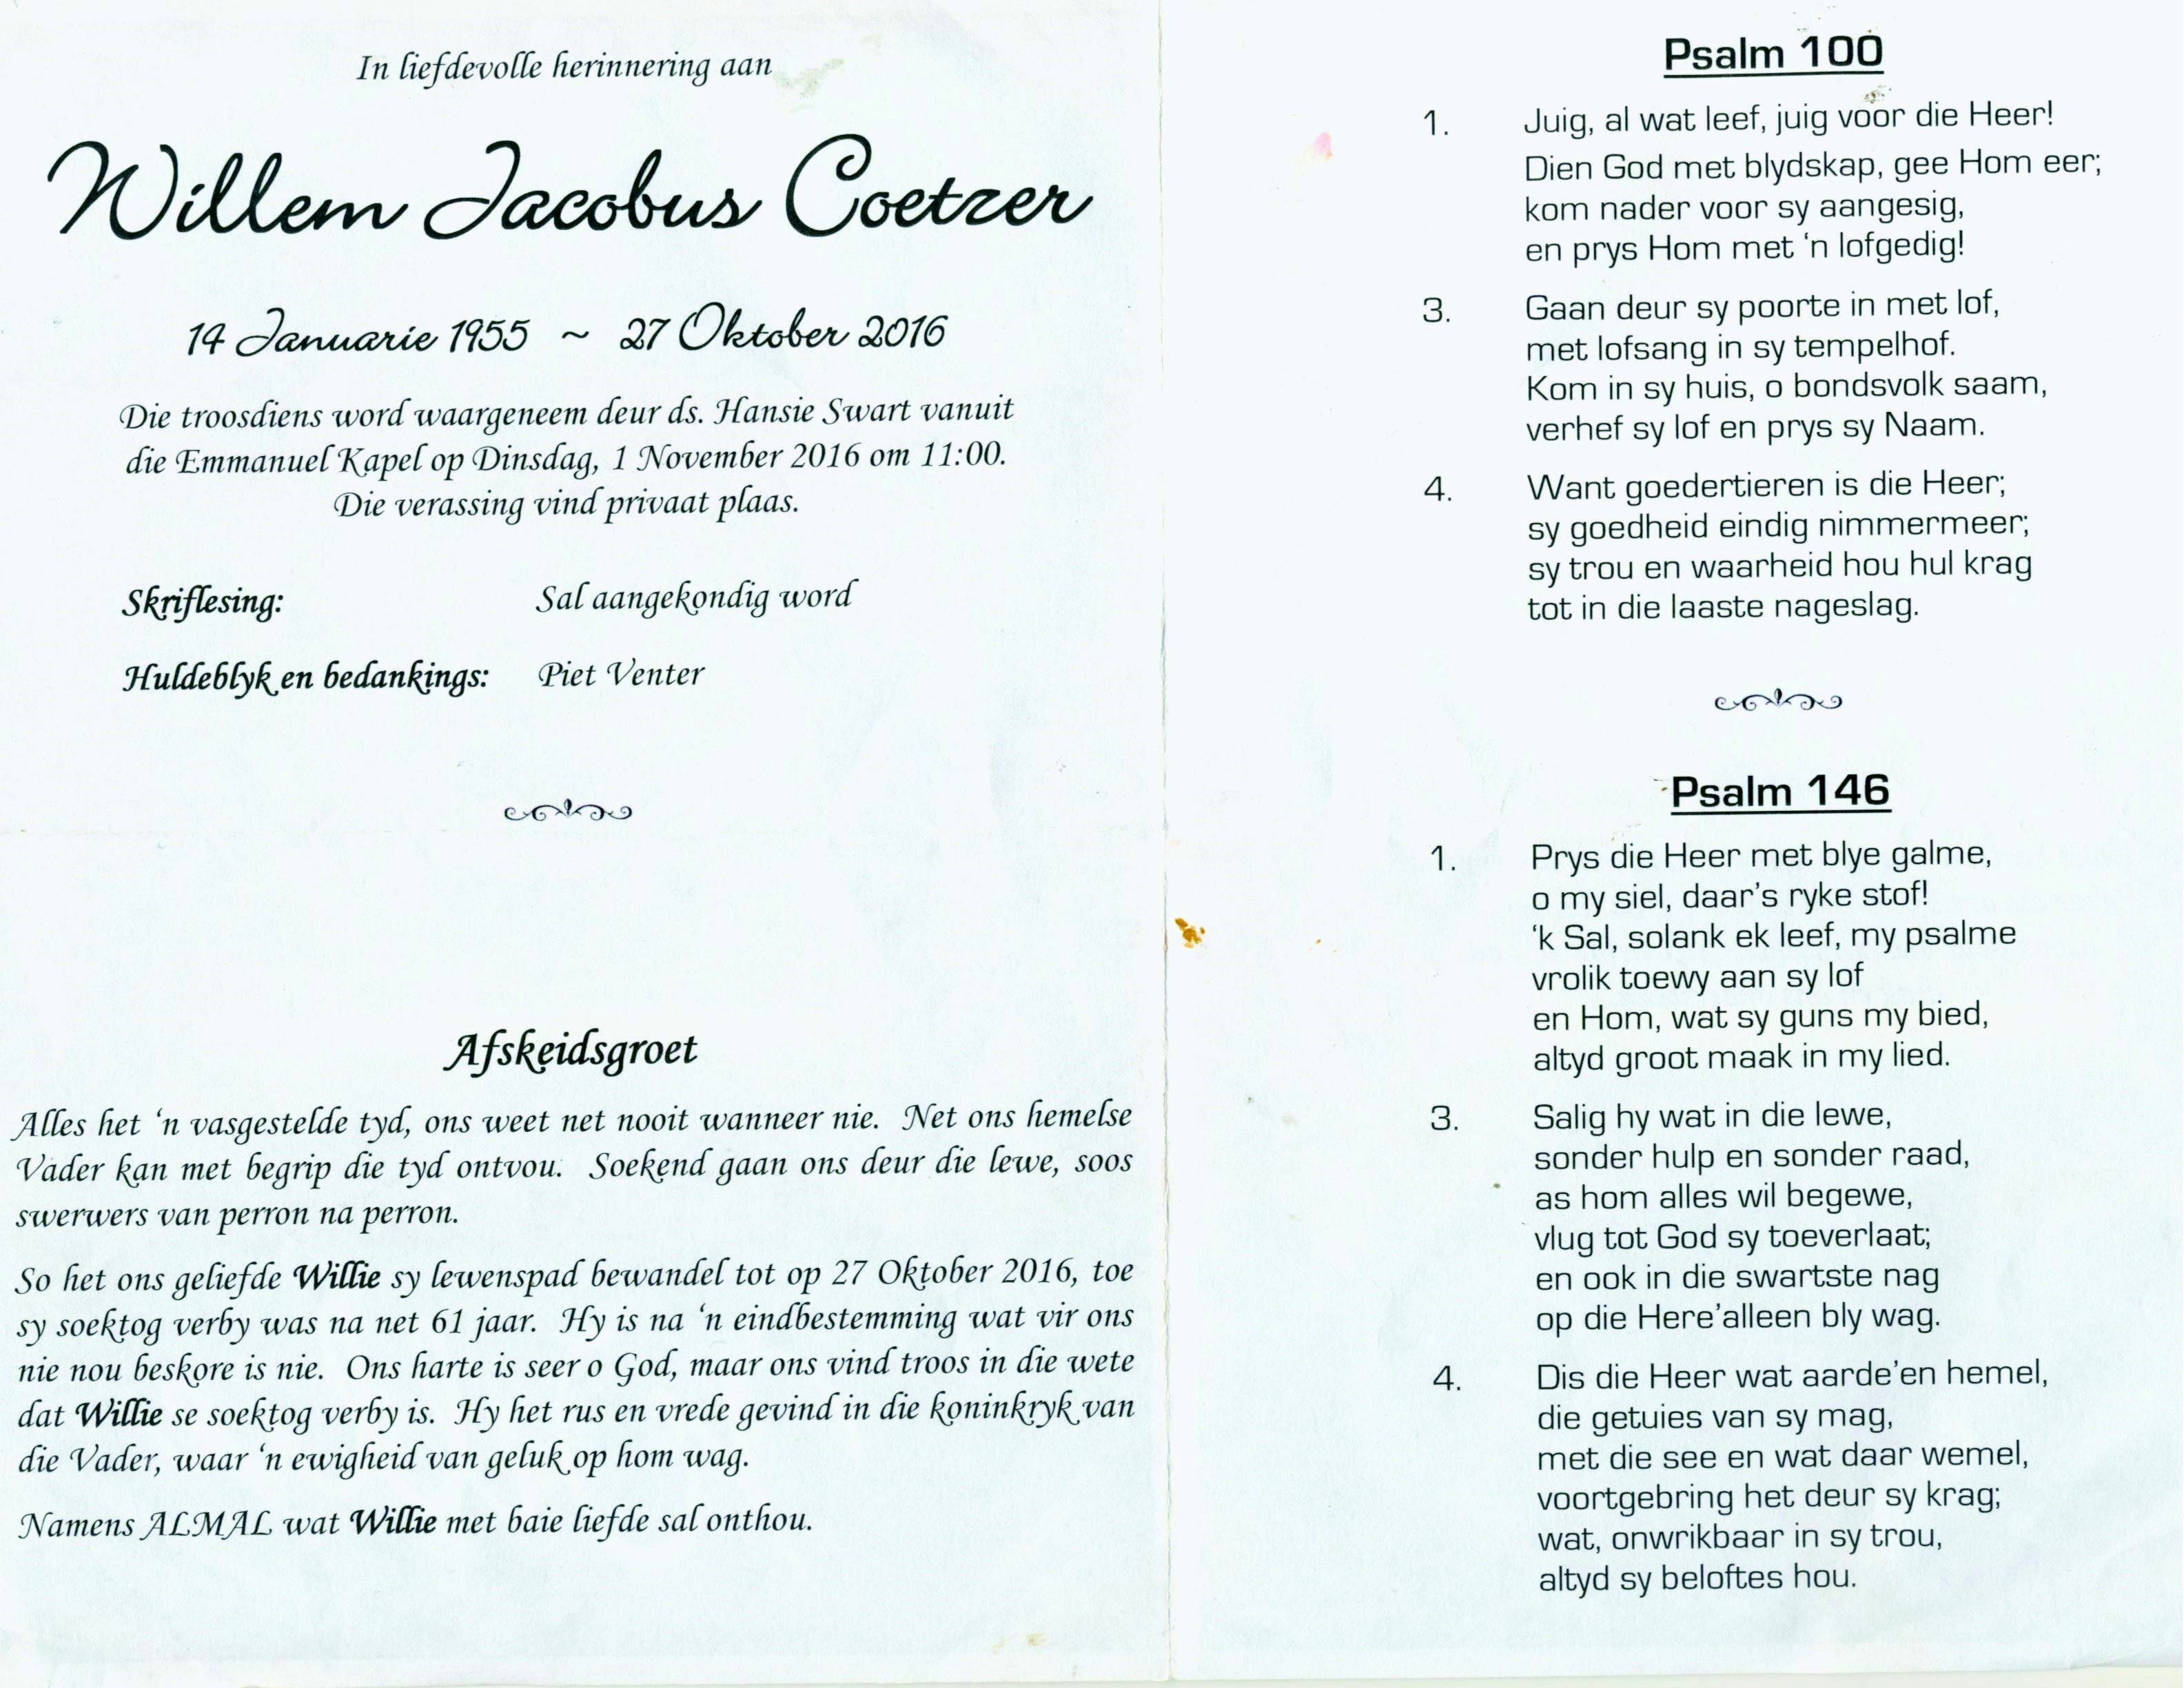 In liefdevolle herinnering aan
Willem Jacobus Coetzer
14 Januarie 1955 ~ 27 Oktober 2016
Die troosdiens word waargeneem deur ds. Hansie Swart vanuit
die Emmanuel Kapel op Dinsdag, 1 November 2016 om 11:00.
Die verassing vind privaat plaas.
Skriflesing: Sal aangekondig word
Huldeblyk en bedankings: Piet Venter
Afskeidsgroet
Alles het ‘n vasgestelde tyd, ons weet net nooit wanneer nie. Net ons hemelse
Vader kan met begrip die tyd ontvou. Soekend gaan ons deur die lewe, soos
swerwers van perron na perron.
So het ons geliefde Willie sy lewenspad bewandel tot op 27 Oktober 2016, toe
sy soektog verby was na net 61 jaar. Hy is na ‘n eindbestemming wat vir ons
nie nou beskore is nie. Ons harte is seer o God, maar ons vind troos in die wete
dat Willie se soektog verby is. Hy het rus en vrede gevind in die koninkryk van
die Vader, waar ‘n ewigheid van geluk op hom wag.
Namens ALMAL wat Willie met baie liefde sal onthou.
Psalm 100
1. Juig, al wat leef, juig voor die Heer!
Dien God met blydskap, gee Hom eer;
kom nader voor sy aangesig,
en prys Hom met ‘n lofgedig!
3. Gaan deur sy poorte in met lof,
met lofsang in sy tempelhof.
Kom in sy huis, o bondsvolk saam,
verhef sy lof en prys sy Naam.
4. Want goedertieren is die Heer;
sy goedheid eindig nimmermeer;
sy trou en waarheid hou hul krag
tot in die laaste nageslag.
Psalm 146
1. Prys die Heer met blye galme,
o my siel, daar’s ryke stof!
‘k Sal, solank ek leef, my psalme
vrolik toewy aan sy lof
en Hom, wat sy guns my bied,
altyd groot maak in my lied.
3. Salig hy wat in die lewe,
sonder hulp en sonder raad,
as hom alles wil begewe,
vlug tot God sy toeverlaat;
en ook in die swartste nag
op die Here’alleen bly wag.
4. Dis die Heer wat aarde’en hemel,
die getuies van sy mag,
met die see en wat daar wemel,
voortgebring het deur sy krag;
wat, onwrikbaar in sy trou,
altyd sy beloftes hou.